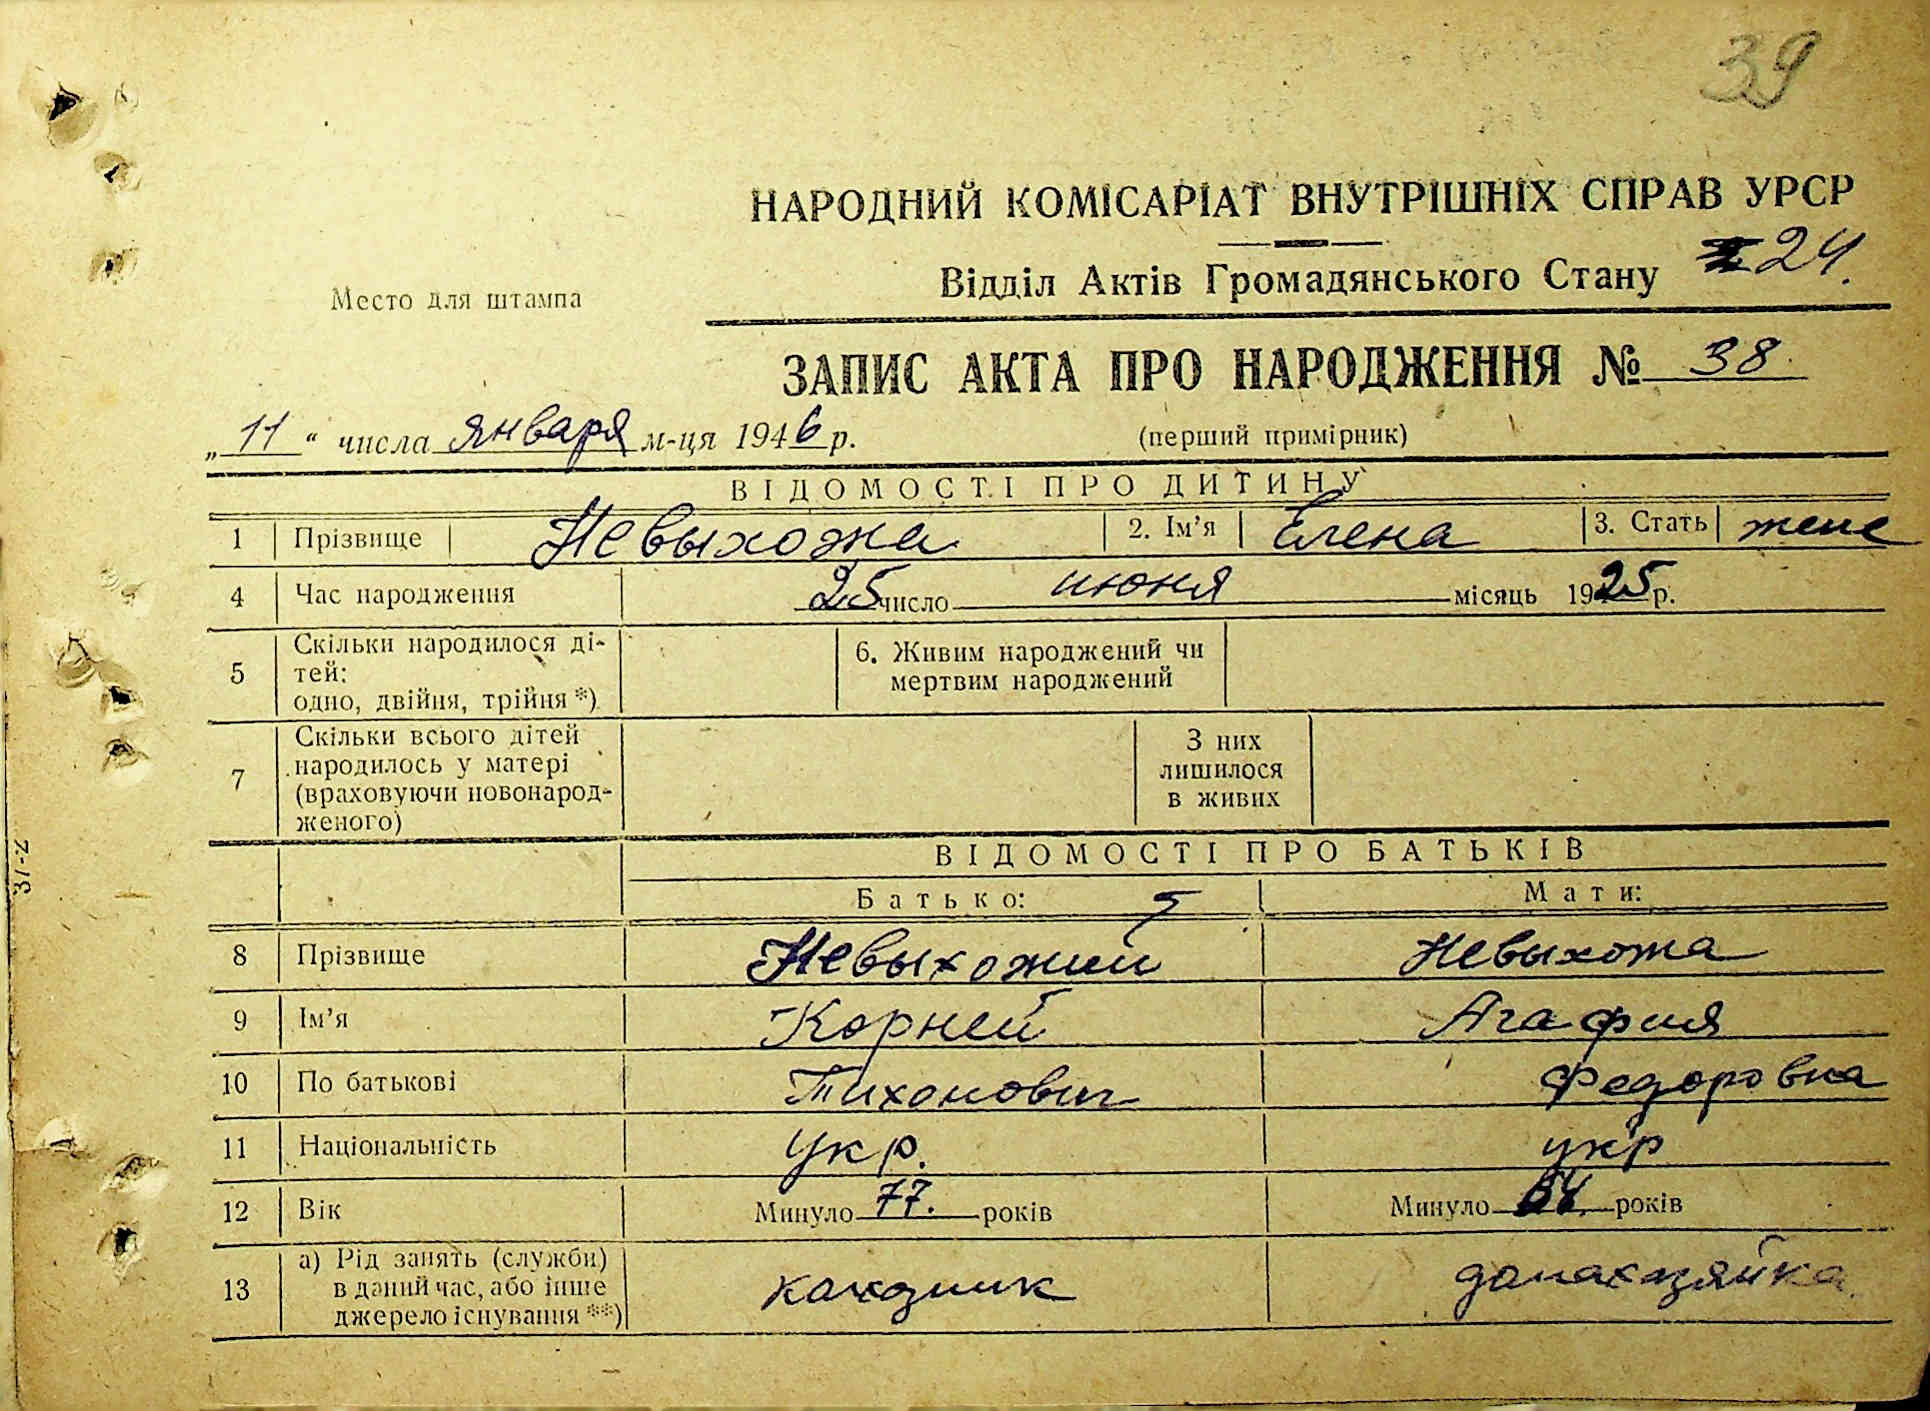 39
НАРОДНИЙ КОМІСАРІАТ ВНУТРІШНІХ СПРАВ УРСР
Место для штампа
Відділ Актів Громадянського Стану 24.
ЗАПИС АКТА ПРО НАРОДЖЕННЯ № 38.
„11“ числа января м-ця 1946 р.
(перший примірник)
ВІДОМОСТІ ПРО ДИТИНУ
1 Прізвище Невыхожа 2. Ім’я Елена 3. Стать жене
4 Час народження 25 число июня місяць 1925 р.
5 Скільки народилося ді-
тей:
одно, двійня, трійня *)
6. Живим народжений чи
мертвим народжений
7 Скільки всього дітей
народилось у матері
(враховуючи новонарод-
женого)
З них
лишилося
в живих
ВІДОМОСТІ ПРО БАТЬКІВ
Батько: Мати:
8 Прізвище Невыхожий Невыхожа
9 Ім’я Корней Агафия
10 По батькові Тихонович Федоровна
11 Національність укр. укр
12 Вік Минуло 77. років Минуло 64. років
13 а) Рід занять (служби)
в даний час, або інше
джерело існування **)
домахазяйка